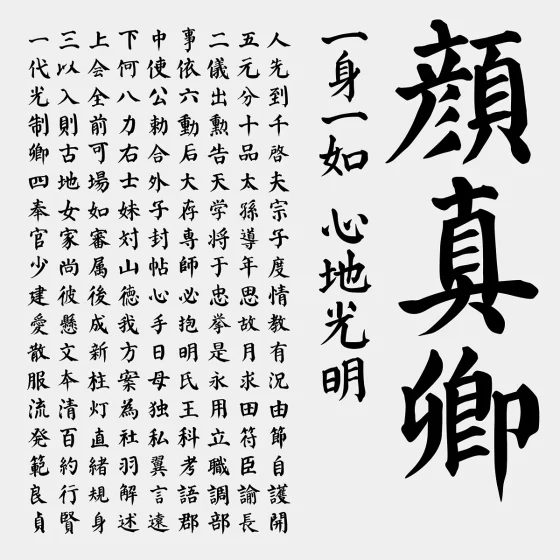 顔真卿
一身一如 心地光明
一三上下中事二五人
代以会何使依儀元先
光入全八公六出分到
制則前力勅動勲十千
卿古可右合后告品啓
四地場士外大天太夫
奉女如妹子存学孫宗
官家審対封専将導子
少尚属山帖師于年度
建彼後徳心必忠思情
愛懸成我手抱挙故教
散文新方日明是月有
服本柱案母氏永求況
流清灯為独王用田由
発百直社私科立符節
範約緒羽翼考職臣自
良行規解言語調諭護
貞賢身述遠郡部長開